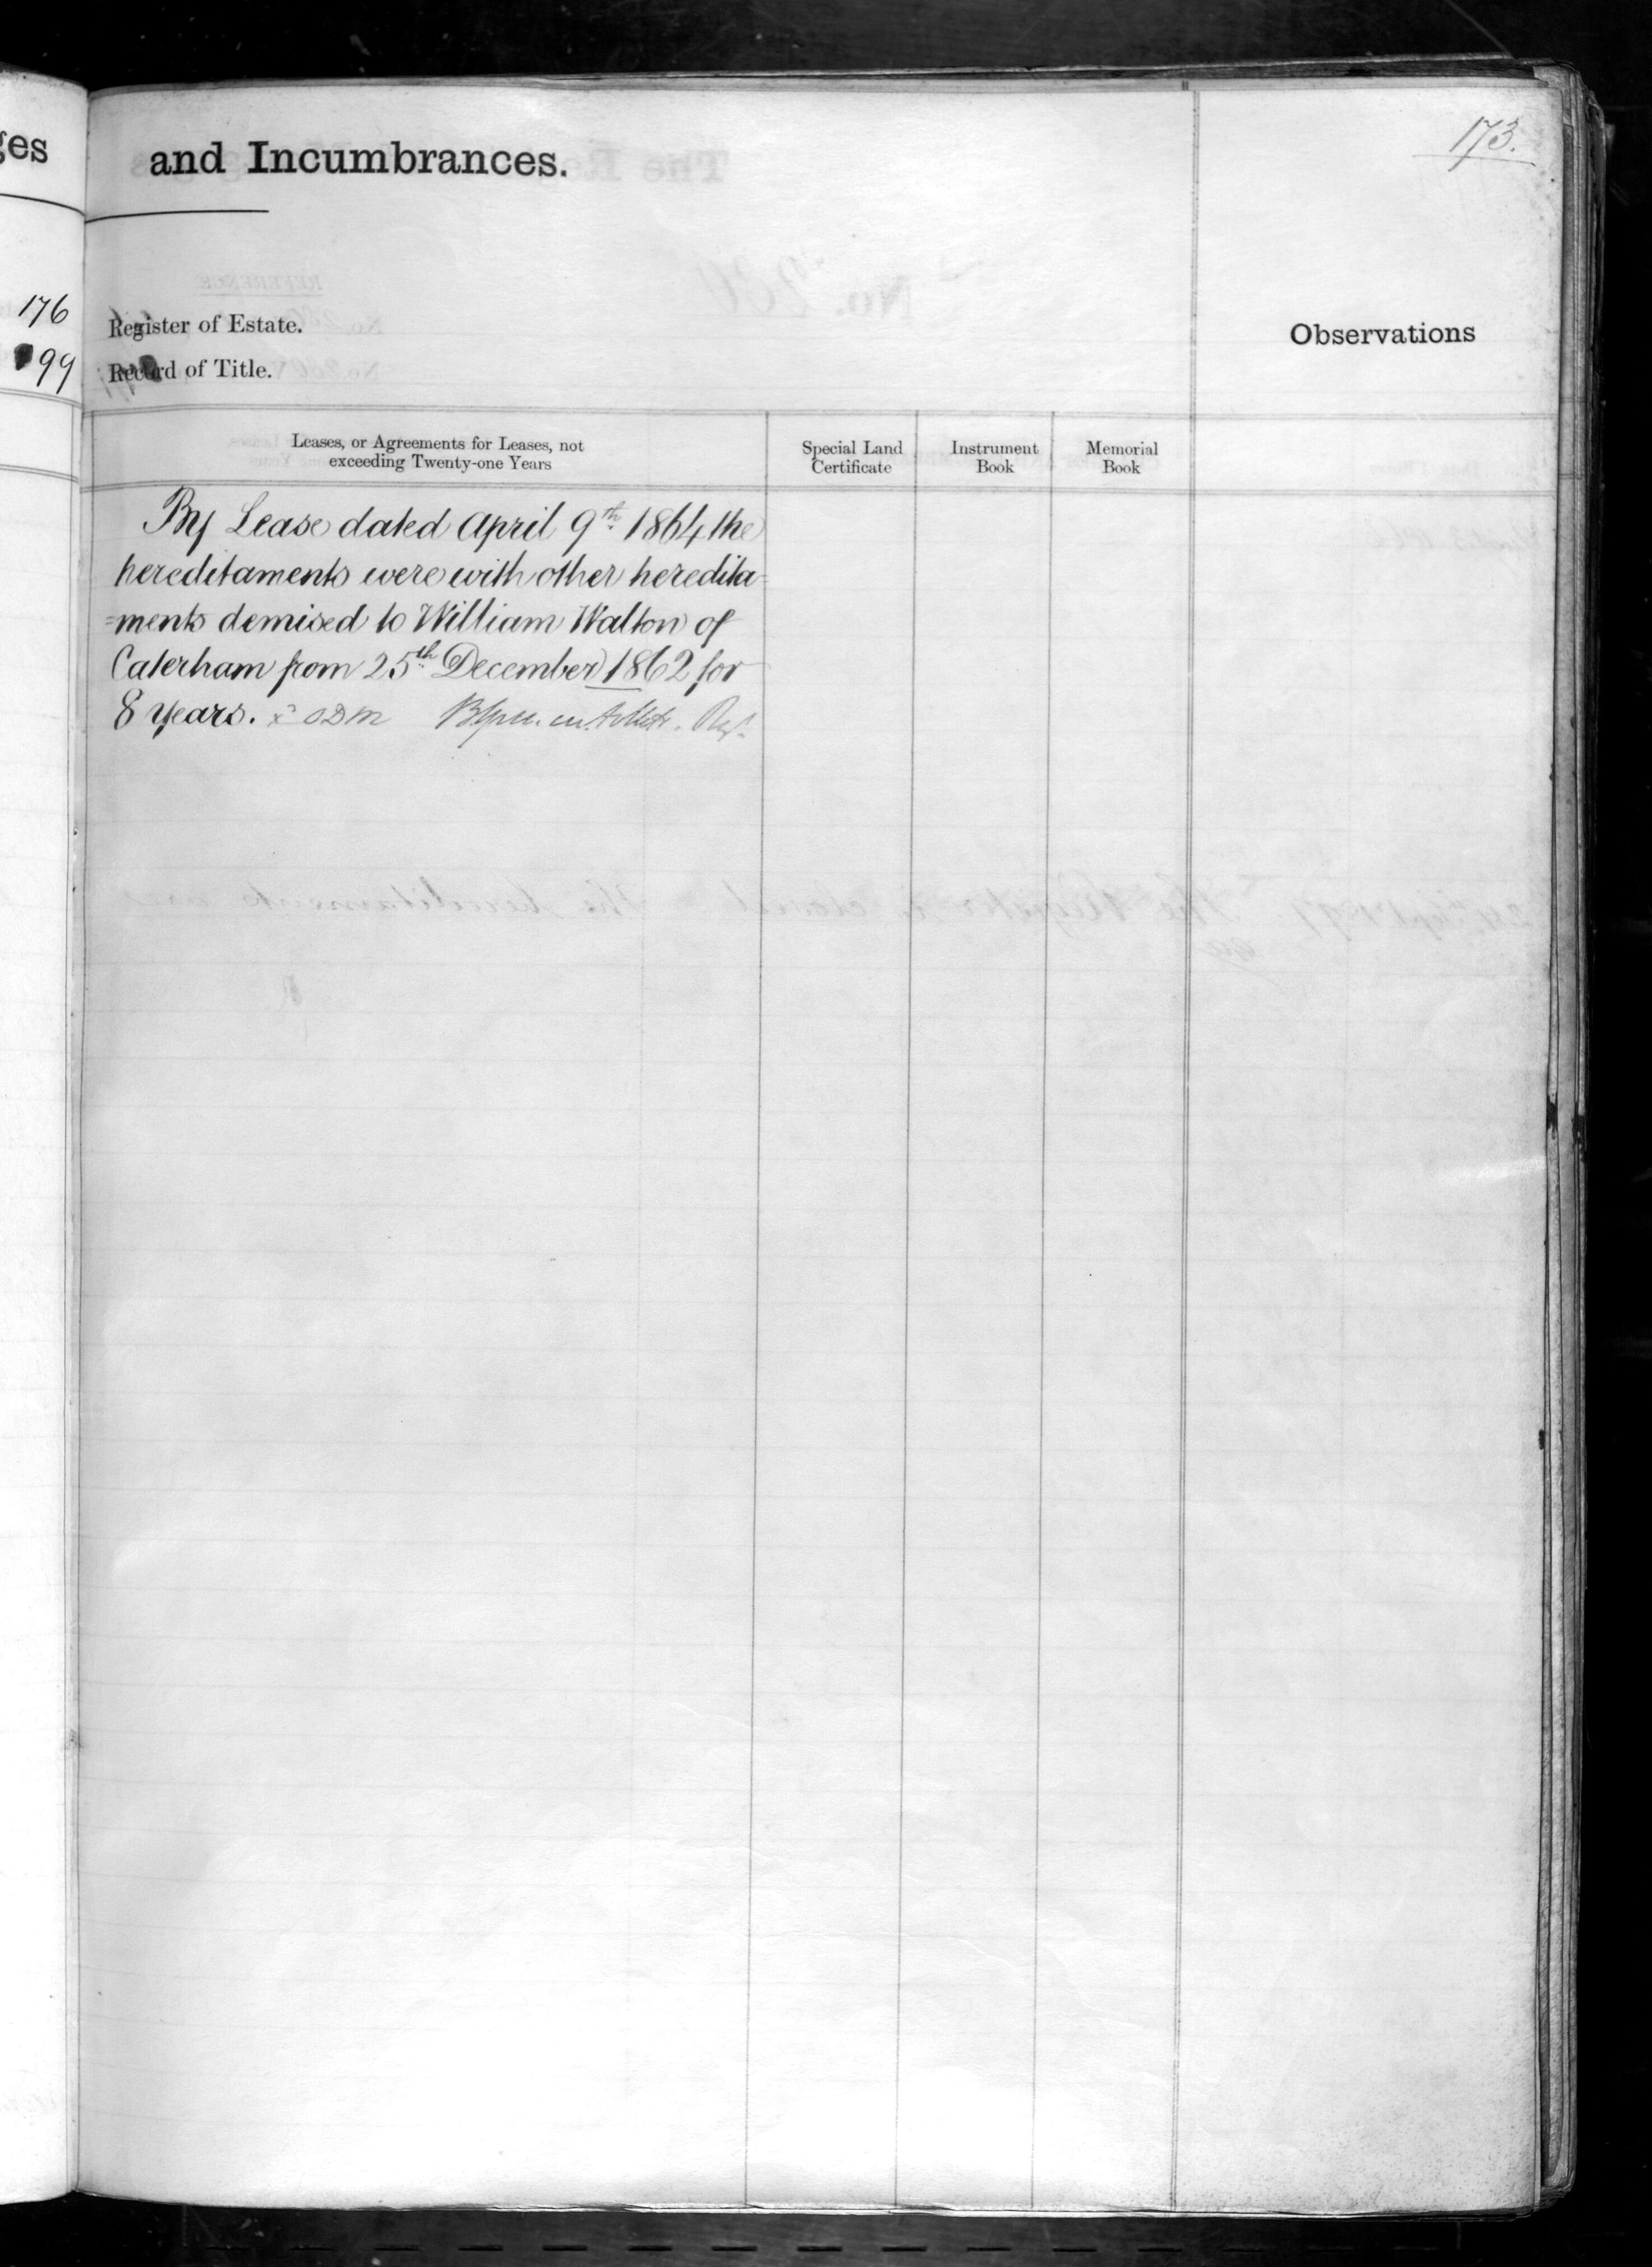 173.
and Incumbrances.
176
Register of Estate.
99
Record of Title.
Observations
Leases, or Agreements for Leases, not
exceeding Twenty-one Years
Special Land
Certificate
Instrument
Book
Memorial
Book
By Lease dated April 9th 1864 the
hereditaments were with other heredita-
=ments demised to William Walton of
Caterham from 25th December 1862 for
8 years.